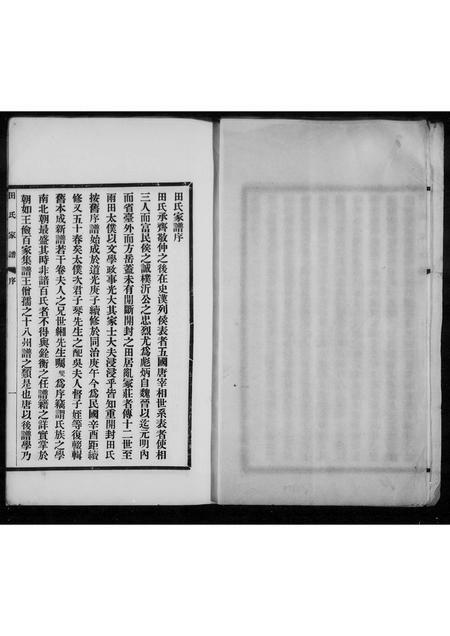 田氏家譜序
田氏承齊敬仲之後在史漢列侯表者五國唐宰相世系表者使相
三人而富民侯之誠樸沂公之忠烈尤爲彪炳自魏晉以迄元明內
而省臺外而方岳蓋未有間斷開封之田居亂冢莊者傳十二世至
雨田太僕以文學政事光大其家士大夫浸浸乎皆知重開封田氏
按舊序譜始成於道光庚子續修於同治庚午今爲民國辛酉距續
修又五十春矣太僕次君子琴先生之配吳夫人督子姪等復輯
舊本成新譜若干卷夫人之兄世緗先生囑 爲序竊謂氏族之學
南北朝最盛其時非諳百氏者不得與銓衡之任譜籍之詳實掌於
朝如王儉百家集譜王僧孺之十八州譜之類是也唐以後譜學乃
田氏家譜 序 一